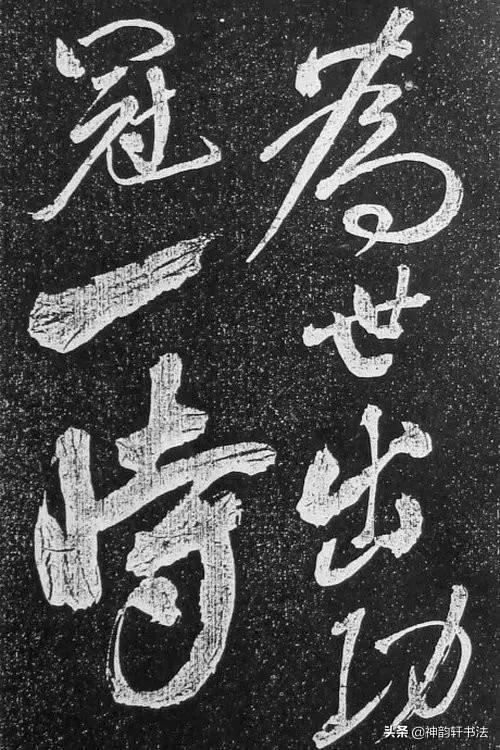 為世出功
冠一時
头条 @神韵轩书法